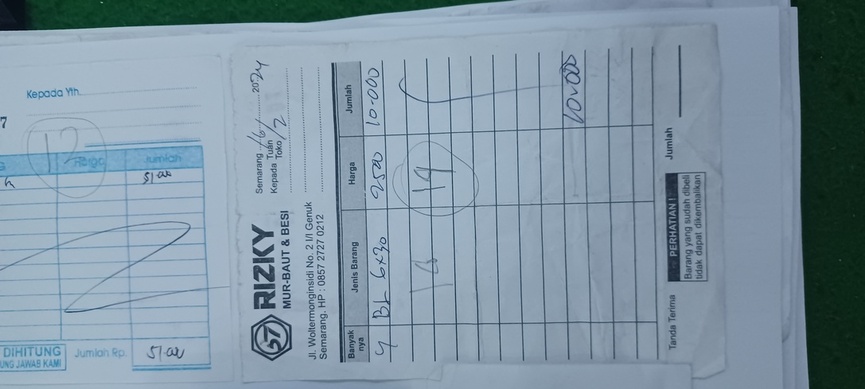 Kepada Yth.
7
12
Harga Jumlah
51.000
DIHITUNG
UNG JAWAB KAMI
Jumlah Rp. 51.000
57 RIZKY
MUR-BAUT & BESI
Jl. Woltermonginsidi No. 2 I/I Genuk
Semarang. HP : 0857 2727 0212
Semarang 16/2 2024
Kepada Tuan
Toko
Banyak nya Jenis Barang Harga Jumlah
4 BL 6x30 2500 10.000
14
10.000
Tanda Terima
PERHATIAN !
Barang yang sudah dibeli
tidak dapat dikembalikan
Jumlah